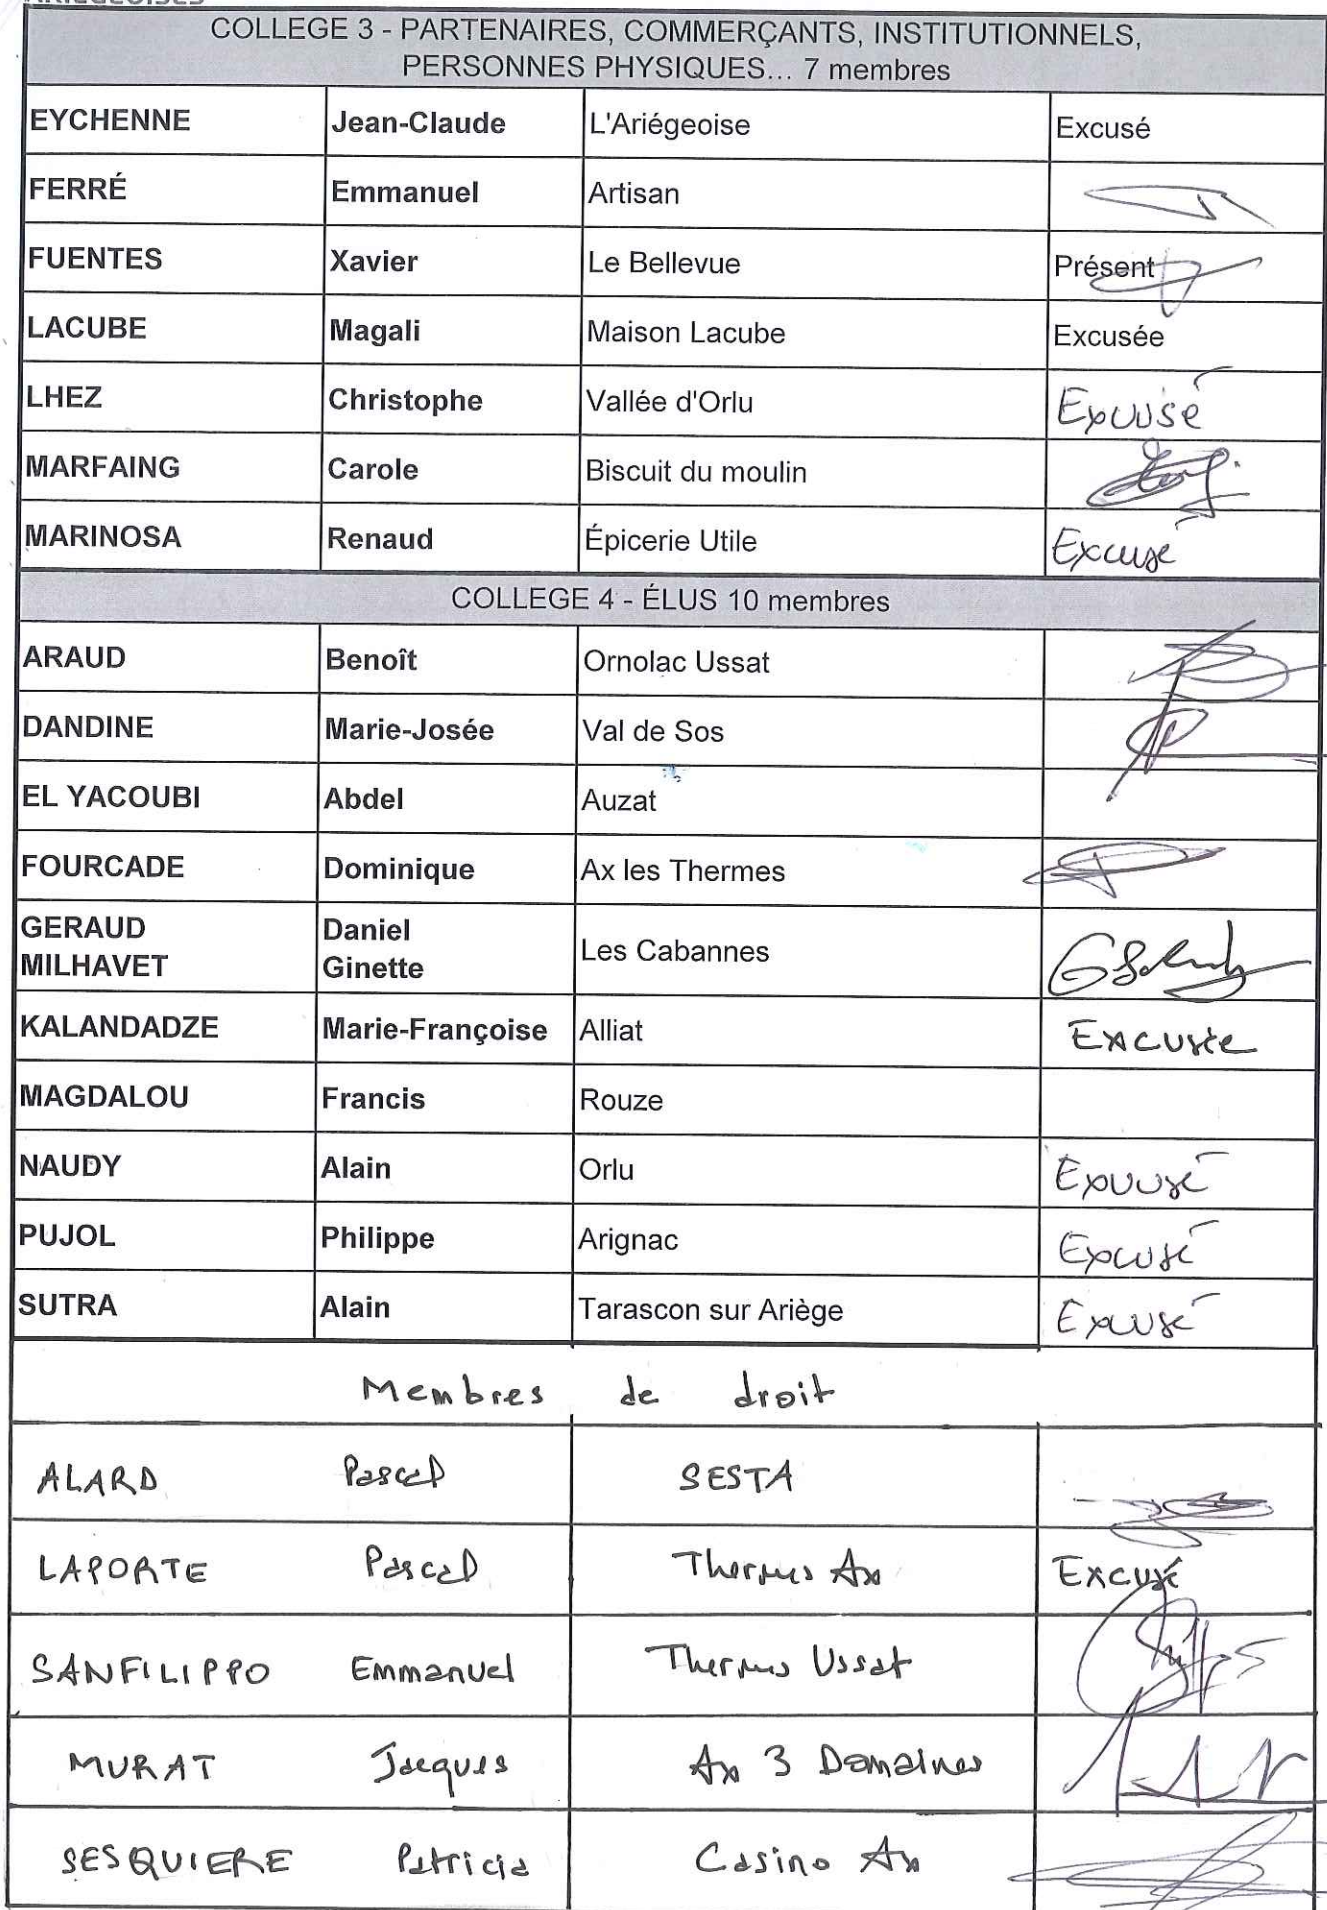 COLLEGE 3 - PARTENAIRES, COMMERÇANTS, INSTITUTIONNELS,
PERSONNES PHYSIQUES... 7 membres
EYCHENNE Jean-Claude L'Ariégeoise Excusé
FERRÉ Emmanuel Artisan
FUENTES Xavier Le Bellevue Présent
LACUBE Magali Maison Lacube Excusée
LHEZ Christophe Vallée d'Orlu Excusé
MARFAING Carole Biscuit du moulin
MARINOSA Renaud Épicerie Utile Excusé
COLLEGE 4 - ÉLUS 10 membres
ARAUD Benoît Ornolac Ussat
DANDINE Marie-Josée Val de Sos
EL YACOUBI Abdel Auzat
FOURCADE Dominique Ax les Thermes
GERAUD Daniel
MILHAVET Ginette Les Cabannes
KALANDADZE Marie-Françoise Alliat Excusée
MAGDALOU Francis Rouze
NAUDY Alain Orlu Excusé
PUJOL Philippe Arignac Excusé
SUTRA Alain Tarascon sur Ariège Excusé
Membres de droit
ALARD Pascal SESTA
LAPORTE Pascal Thermes Ax Excusé
SANFILIPPO Emmanuel Thermes Ussat
MURAT Jacques Ax 3 Domaines
SESQUIERE Patricia Casino Ax